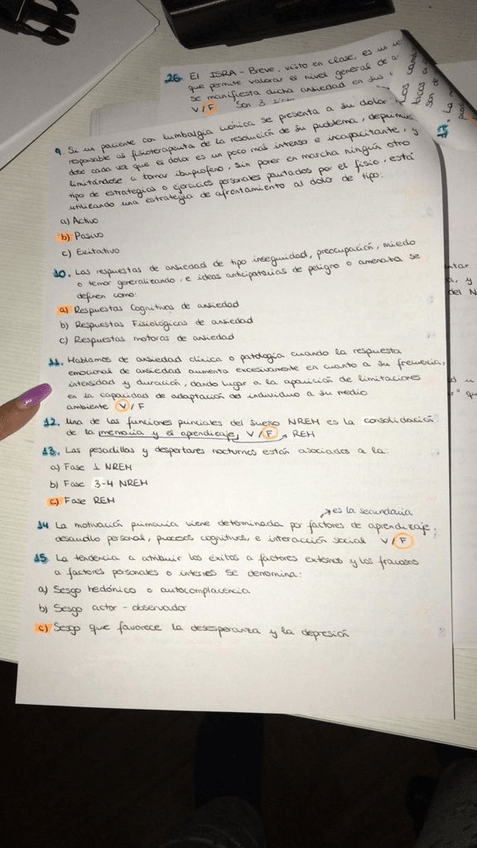 26. El ISRA-Breve, visto en clase, es un
que permite valorar el nivel general de a
se manifiesta dicha ansiedad en sus
V/F Son 3
9. Si un paciente con lumbalgia crónica se presenta a su dolor,
responsable al fisioterapeuta de la resolución de su problema, deprimir
dese cada vez que el dolor es un poco más intenso e incapacitante, y
limitándose a tomar ibuprofeno, sin poner en marcha ningún otro
tipo de estrategias o ejercicios personales pautados por el fisio, está
utilizando una estrategia de afrontamiento al dolor de tipo:
a) Activo
b) Pasivo
c) Evitativo
10. Las respuestas de ansiedad de tipo inseguridad, preocupación, miedo
o temor generalizando, e ideas anticipatorias de peligro o amenaza se
definen como:
a) Respuestas Cognitivas de ansiedad
b) Respuestas Fisiológicas de ansiedad
c) Respuestas motoras de ansiedad
11. Hablamos de ansiedad clínica o patológica cuando la respuesta
emocional de ansiedad aumenta excesivamente en cuanto a su frecuencia,
intensidad y duración, dando lugar a la aparición de limitaciones
en la capacidad de adaptación del individuo a su medio
ambiente V/F
12. Una de las funciones principales del sueño NREM es la consolidación
de la memoria y el aprendizaje, V/F REM
13. Las pesadillas y despertares nocturnos están asociados a la:
a) Fase 1 NREM
b) Fase 3-4 NREM
c) Fase REM
→ es la secundaria
14 La motivación primaria viene determinada por factores de aprendizaje,
desarrollo personal, procesos cognitivos, e interacción social V/F
15. La tendencia a atribuir los éxitos a factores externos y los fracasos
a factores personales o internos se denomina:
a) Sesgo hedónico o autocomplacencia
b) Sesgo actor-observador
c) Sesgo que favorece la desesperanza y la depresión